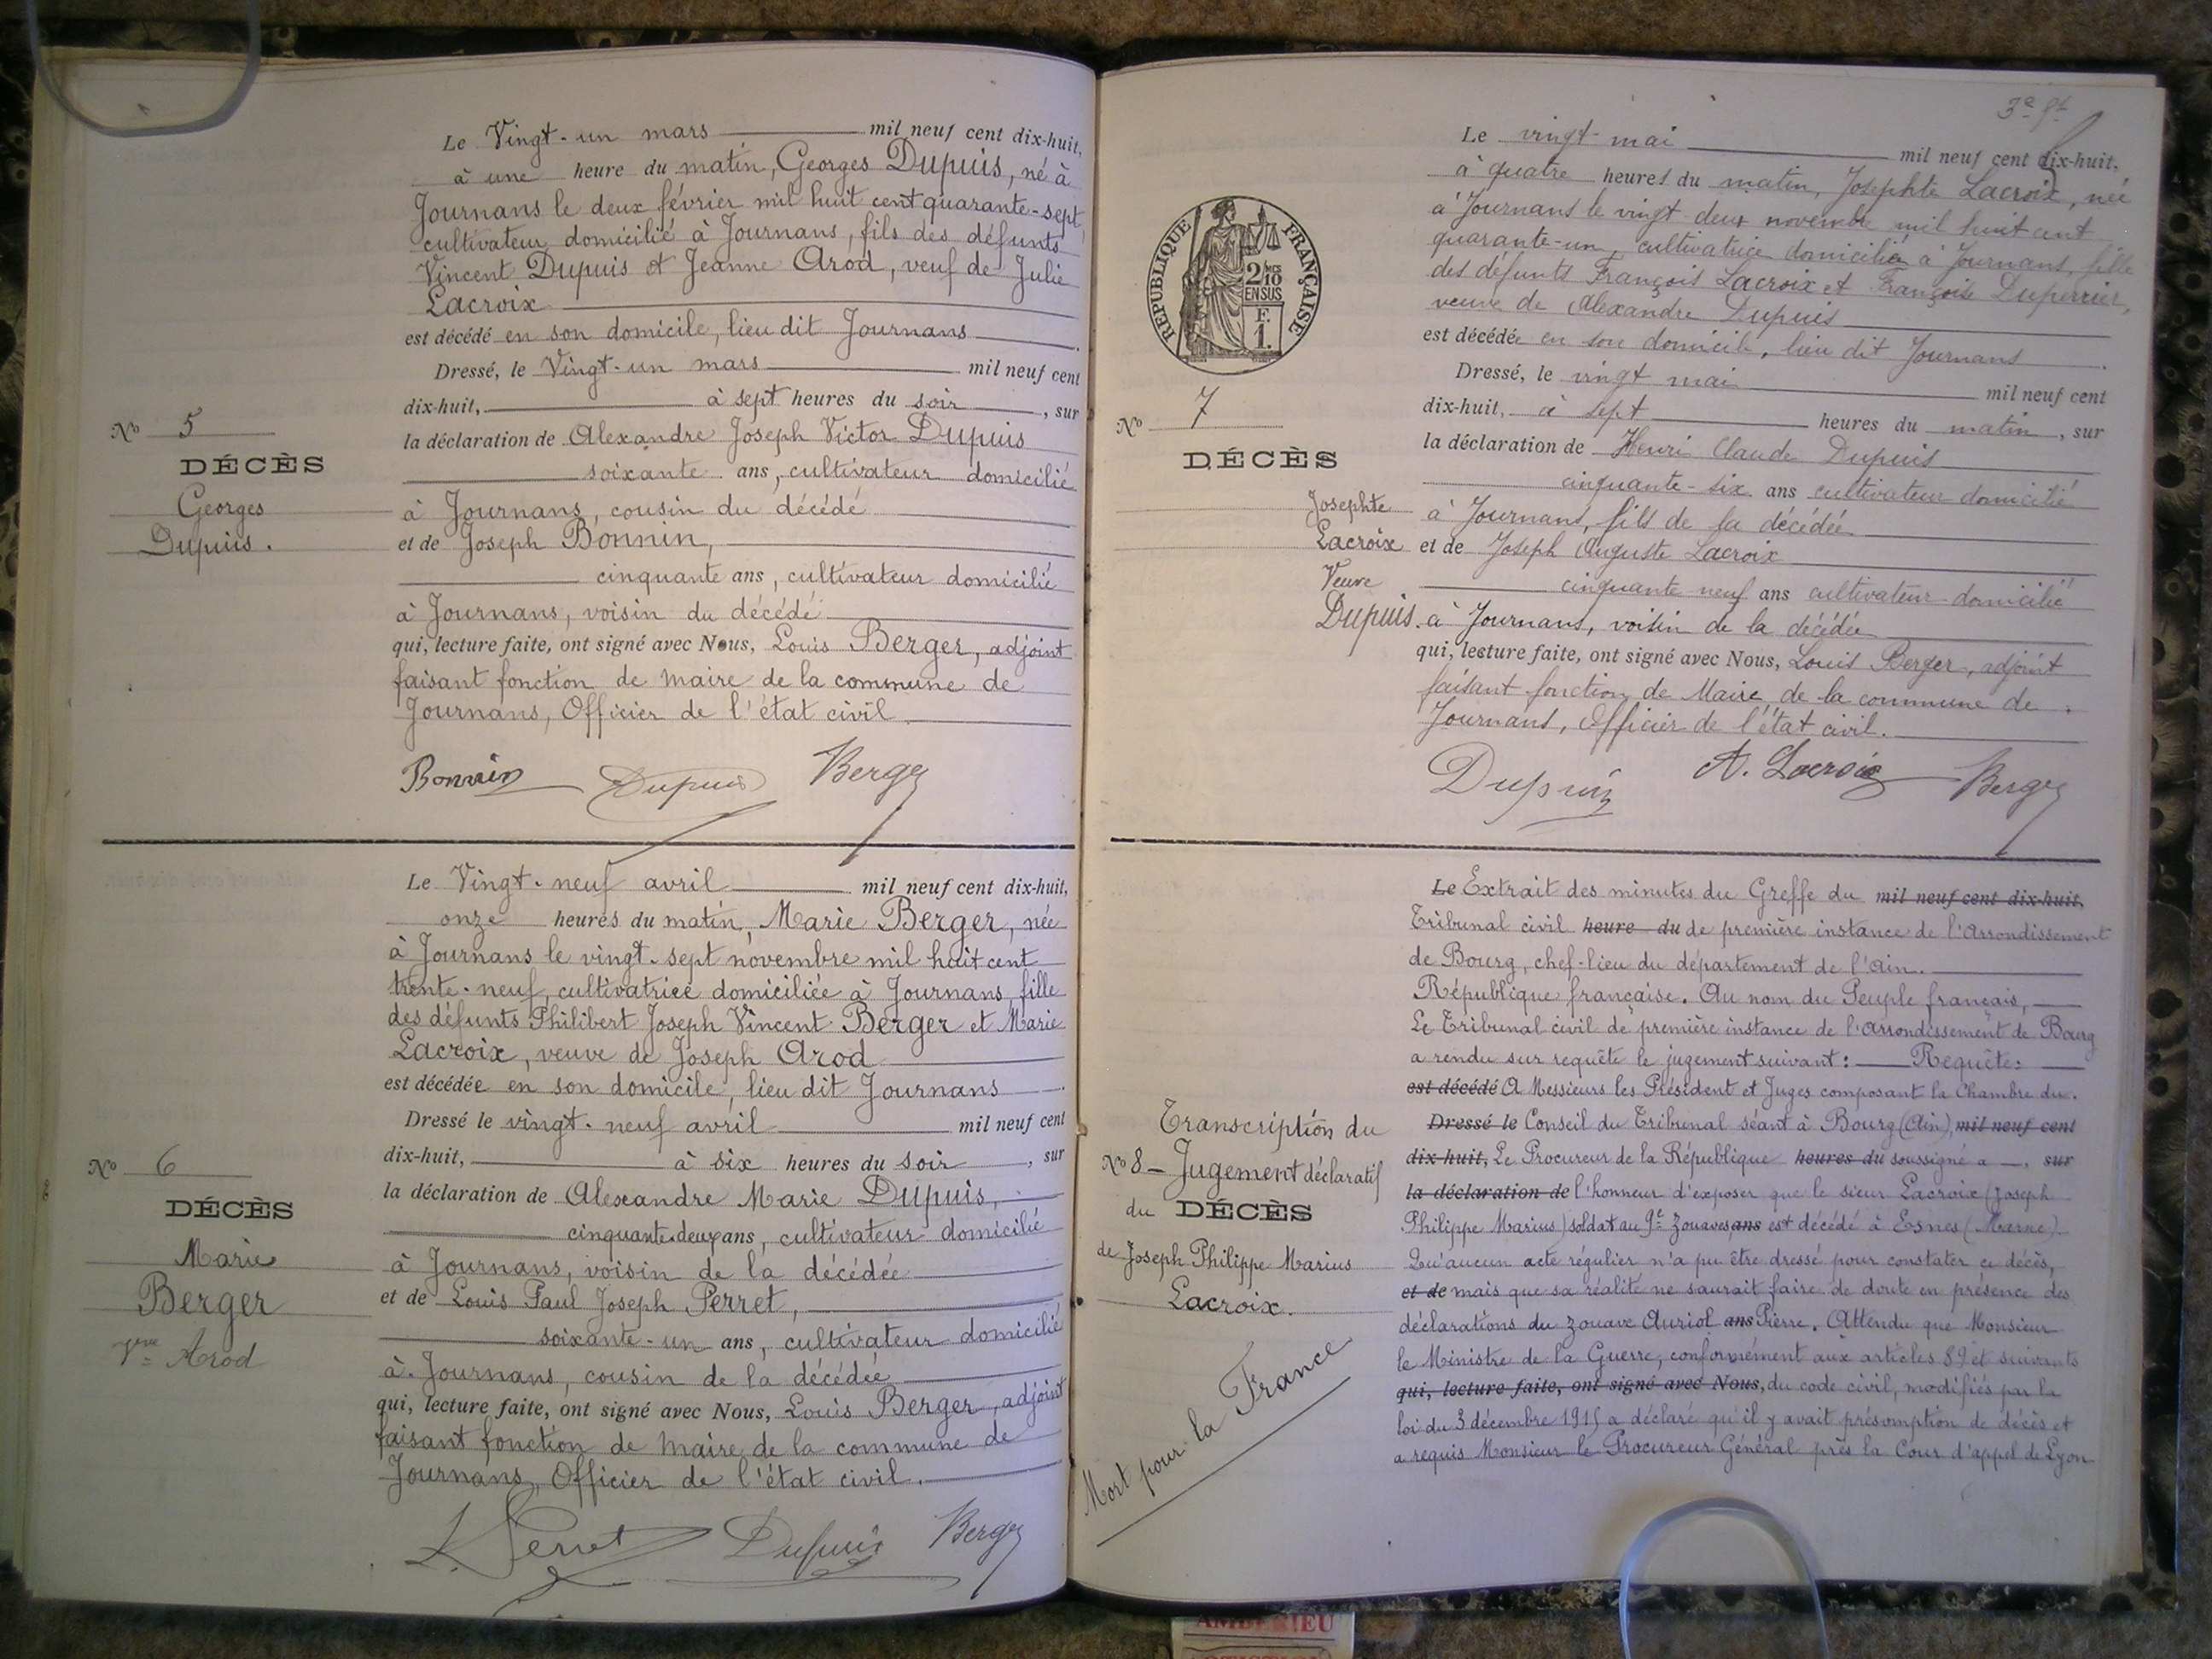 Le Vingt-un mars mil neuf cent dix-huit,
à une heure du matin, Georges Dupuis, né à
Journans le deux février mil huit cent quarante-sept,
cultivateur domicilié à Journans, fils des défunts
Vincent Dupuis et Jeanne Arod, veuf de Julie
Lacroix
est décédé en son domicile, lieu dit Journans.
Dressé, le Vingt-un mars mil neuf cent
dix-huit, à sept heures du soir, sur
la déclaration de Alexandre Joseph Victor Dupuis
soixante ans, cultivateur domicilié
à Journans, cousin du décédé
et de Joseph Bonnin,
cinquante ans, cultivateur domicilié
à Journans, voisin du décédé
qui, lecture faite, ont signé avec Nous, Louis Berger, adjoint
faisant fonction de maire de la commune de
Journans, Officier de l'état civil.
Bonnin Dupuis Berger
No 5
DÉCÈS
Georges
Dupuis.
Le Vingt-neuf avril mil neuf cent dix-huit,
onze heures du matin, Marie Berger, née
à Journans le vingt-sept novembre mil huit cent
trente-neuf, cultivatrice domiciliée à Journans, fille
des défunts Philibert Joseph Vincent Berger et Marie
Lacroix, veuve de Joseph Arod
est décédée en son domicile, lieu dit Journans.
Dressé le vingt-neuf avril mil neuf cent
dix-huit, à six heures du soir, sur
la déclaration de Alexandre Marie Dupuis,
cinquante-deux ans, cultivateur domicilié
à Journans, voisin de la décédée
et de Louis Paul Joseph Perret,
soixante-un ans, cultivateur domicilié
à Journans, cousin de la décédée
qui, lecture faite, ont signé avec Nous, Louis Berger, adjoint
faisant fonction de maire de la commune de
Journans, Officier de l'état civil.
L. Perret Dupuis Berger
No 6
DÉCÈS
Marie
Berger
Vve Arod
Le vingt mai mil neuf cent dix-huit,
à quatre heures du matin, Josephte Lacroix, née
à Journans le vingt deux novembre mil huit cent
quarante-un, cultivatrice domiciliée à Journans, fille
des défunts François Lacroix et Françoise Duperrier,
veuve de Alexandre Dupuis
est décédée en son domicile, lieu dit Journans.
Dressé, le vingt mai mil neuf cent
dix-huit, à sept heures du matin, sur
la déclaration de Henri Claude Dupuis
cinquante-six ans cultivateur domicilié
à Journans, fils de la décédée
et de Joseph Auguste Lacroix
cinquante neuf ans cultivateur domicilié
à Journans, voisin de la décédée
qui, lecture faite, ont signé avec Nous, Louis Berger, adjoint
faisant fonction de Maire de la commune de
Journans, Officier de l'état civil.
Dupuis A. Lacroix Berger
RÉPUBLIQUE FRANÇAISE
2/10
EN SUS
F.
1.
No 7
DÉCÈS
Josephte
Lacroix
Veuve
Dupuis.
Le Extrait des minutes du Greffe du mil neuf cent dix-huit,
Tribunal civil heure du de première instance de l'Arrondissement
de Bourg, chef-lieu du département de l'Ain.
République française. Au nom du Peuple français,
Le Tribunal civil de première instance de l'arrondissement de Bourg
a rendu sur requête le jugement suivant : Requête :
est décédé A Messieurs les Président et Juges composant la Chambre du
Dressé le Conseil du Tribunal séant à Bourg (Ain), mil neuf cent
dix huit, Le Procureur de la République heures du soussigné a, sur
la déclaration de l'honneur d'exposer que le sieur Lacroix (Joseph
Philippe Marius) soldat au 9e Zouaves, ans est décédé à Esnes (Marne)
Qu'aucun acte régulier n'a pu être dressé pour constater ce décès,
et de mais que sa réalité ne saurait faire de doute en présence des
déclarations du zouave Auriol ans Pierre. Attendu que Monsieur
le Ministre de la Guerre, conformément aux articles 89 et suivants
qui, lecture faite, ont signé avec Nous, du code civil, modifiés par la
loi du 3 décembre 1915 a déclaré qu'il y avait présomption de décès et
a requis Monsieur le Procureur Général près la Cour d'appel de Lyon
Transcription du
No 8 - Jugement déclaratif
du DÉCÈS
de Joseph Philippe Marius
Lacroix.
Mort pour la France
AMBÉRIEU